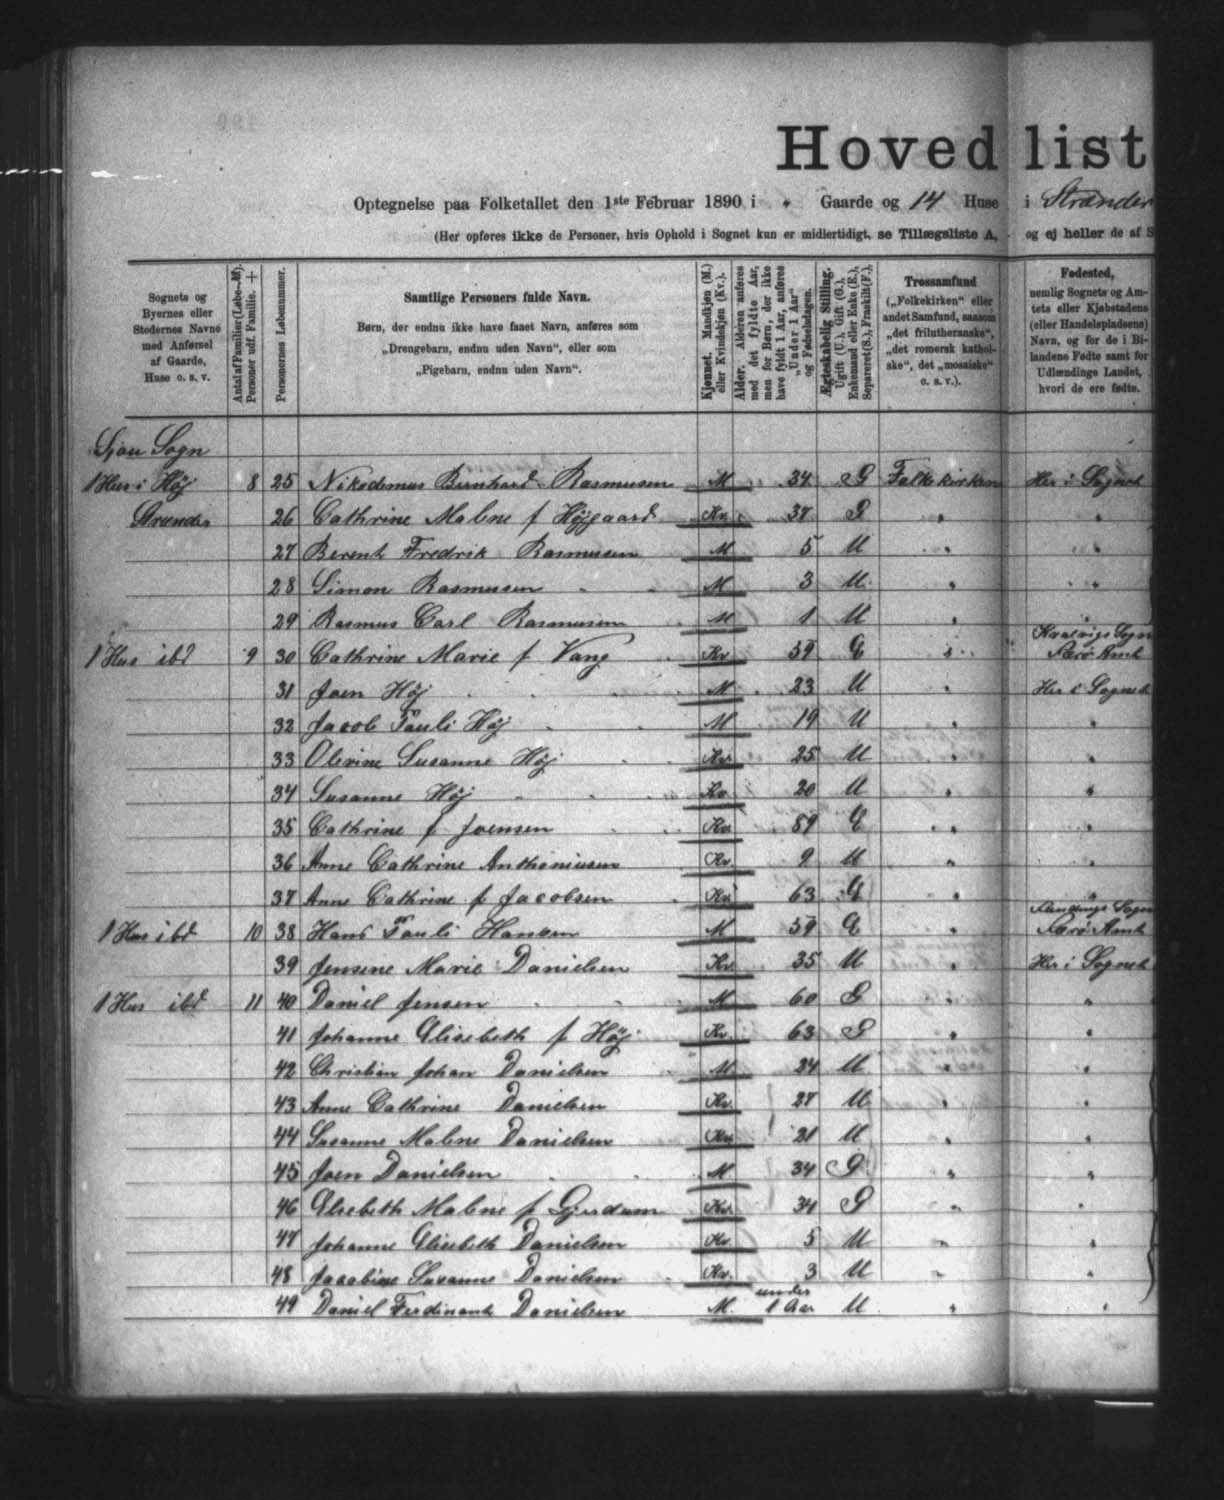 Hovedlist
Optegnelse paa Folketallet den 1ste Februar 1890 i " Gaarde og 14 Huse i Strænder
(Her opføres ikke de Personer, hvis Ophold i Sognet kun er midlertidigt, se Tillægsliste A, og ej heller de af S
Sognets og
Byernes eller
Stedernes Navne
med Anførsel
af Gaarde,
Huse o. s. v.
Antal af Familier (Løbe-№).
Personer udf. Familie. +
Personernes Løbenummer.
Samtlige Personers fulde Navn.
Børn, der endnu ikke have faaet Navn, anføres som
„Drengebarn, endnu uden Navn", eller som
„Pigebarn, endnu uden Navn".
Kjønnet. Mandkjøn (M.)
eller Kvindekjøn (Kv.).
Alder. Alderen anføres
med det fyldte Aar,
men for Børn, der ikke
have fyldt 1 Aar, anføres
„Under 1 Aar"
og Fødselsdagen.
Ægteskabelig Stilling.
Ugift (U.), Gift (G.),
Enkemand eller Enke (E.),
Separeret (S.), Fraskilt (F.).
Trossamfund
(„Folkekirken" eller
andet Samfund, saasom
„det frilutheranske",
„det romersk kathol-
ske", det „mosaiske"
o. s. v.).
Fødested,
nemlig Sognets og Am-
tets eller Kjøbstadens
(eller Handelspladsens)
Navn, og for de i Bi-
landene Fødte samt for
Udlændinge Landet,
hvori de ere fødte.
Sjou Sogn
1 Hus i Høj 8 25 Nikodemus Bernhard Rasmusen M 34 G Folkekirken Her i Sognet
Strænder 26 Cathrine Malene f Højgaard Kv 37 G " "
27 Berent Fredrik Rasmusen M 5 U " "
28 Simon Rasmusen M 3 U " "
29 Rasmus Carl Rasmusen M 1 U " "
Kvalvigs Sogn
1 Hus ibd 9 30 Cathrine Marie f Vang Kv 59 E " Færø Amt
31 Joen Høj M 23 U " Her i Sognet
32 Jacob Pauli Høj M 19 U " "
33 Olivine Susanne Høj Kv 25 U " "
34 Susanne Høj Kv 20 U " "
35 Cathrine f Joensen Kv 89 E " "
36 Anne Cathrine Anthoniusen Kv 9 U " "
37 Anne Cathrine f Jacobsen Kv 63 E " "
Sogn
1 Hus ibd 10 38 Hans Pauli Hansen M 59 E " Færø Amt
39 Jensine Marie Danielsen Kv 35 U " Her i Sognet
1 Hus ibd 11 40 Daniel Jensen M 60 G " "
41 Johanne Elisebeth f Høj Kv 63 G " "
42 Christian Johan Danielsen M 24 U " "
43 Anne Cathrine Danielsen Kv 27 U " "
44 Susanne Malene Danielsen Kv 21 U " "
45 Joen Danielsen M 34 G " "
46 Elsebeth Malene f Kv 34 G " "
47 Johanne Elisebeth Danielsen Kv 5 U " "
48 Jacobine Susanne Danielsen Kv 3 U " "
49 Daniel Ferdinant Danielsen M under 1 Aar U " "